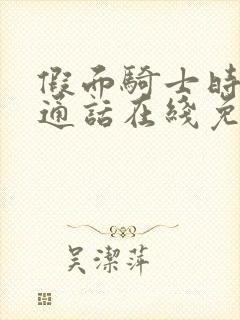 假面騎士時
通話在綫免
吴潔萍